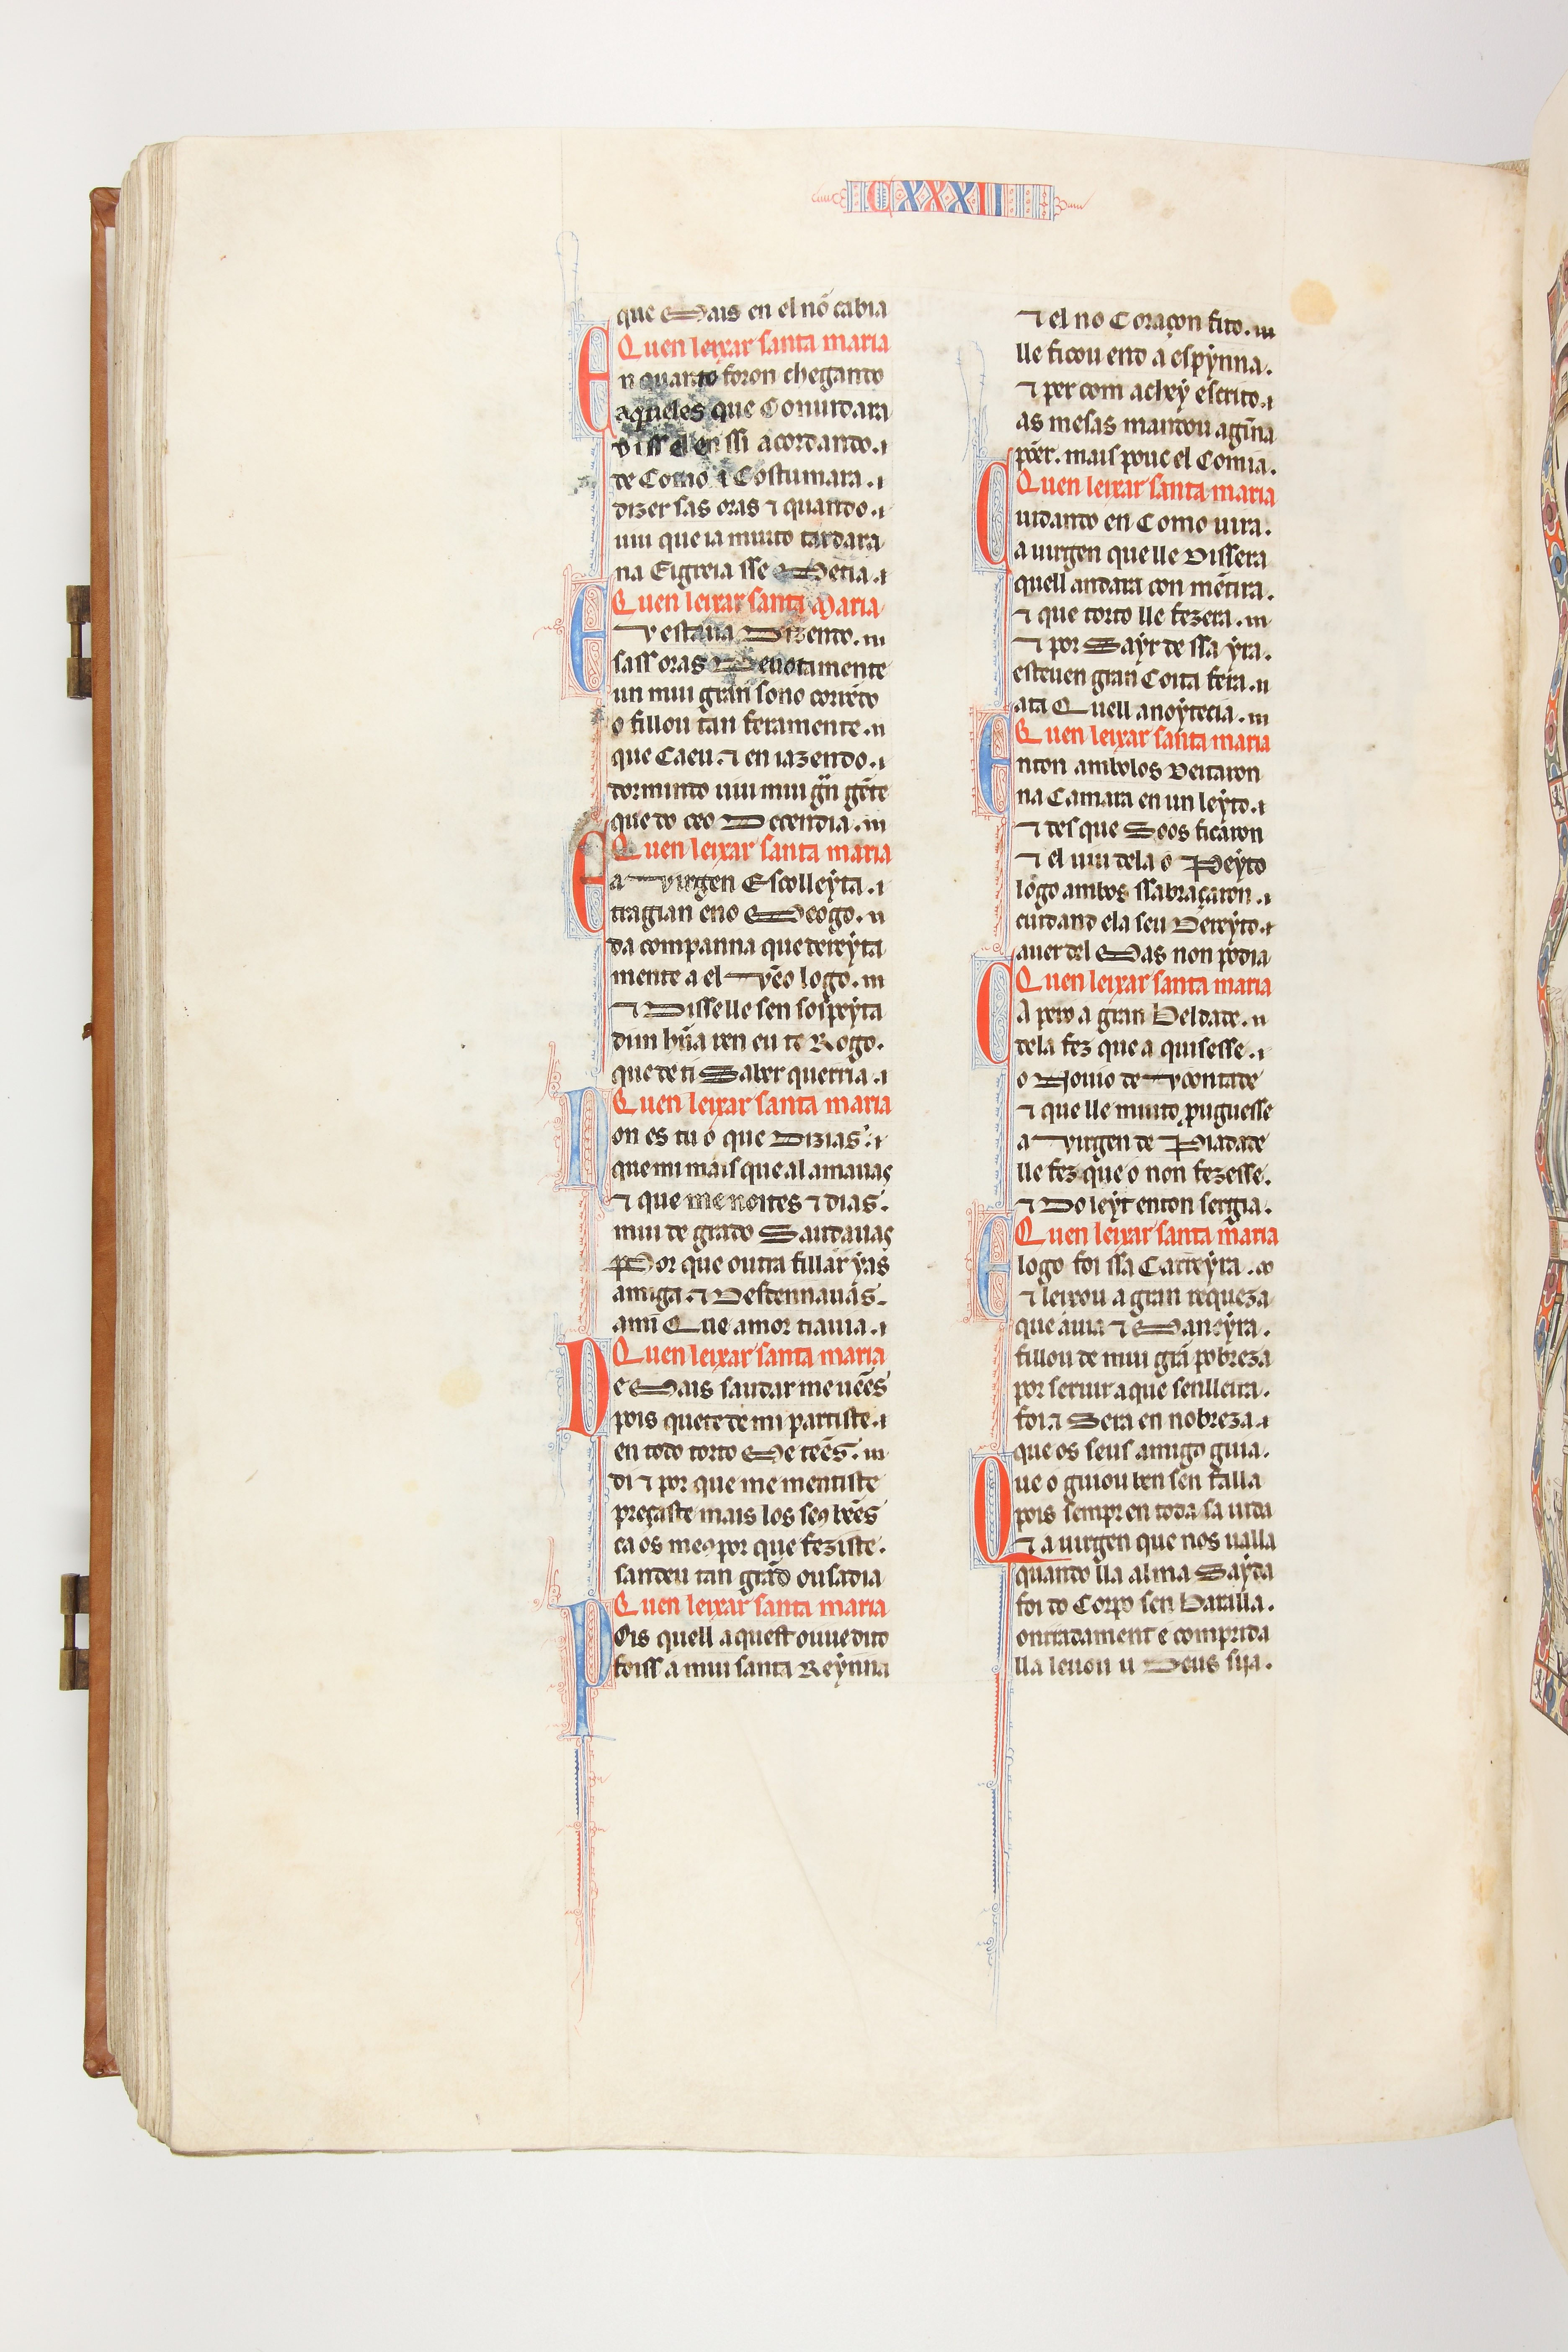 CXXXII
que Mais en el nõ cabia
Quen leixar santa maria
En quanto foron chegando
aqueles que Conuidara
Diss el en ssi acordando.
de Como é Costumara.
dizer sas oras ⁊ quando.
uiu que ia muito tardara
na Eigreia sse Metia.
Quen leixar santa Maria
E V estaua Dizendo.
sass oras Deuotamente
un mui gran sono correndo
o fillou tan feramente.
que Caeu. ⁊ en iazendo.
dorminto uiu mui gñ gẽte
que do ceo Decendia.
Quen leixar santa maria
E a Virgen Escolleyta.
tragian eno Meogo.
da companna que dereyta
mente a el Vẽo logo.
⁊ Disselle sen sospeyta
dun hũa ren eu te Rogo.
que de ti Saber querria.
Quen leixar santa maria
Non es tu o que Dizias.
que mi mais que al amauas
⁊ que me noites ⁊ dias.
mui de grado Saudauas
Por que outra fillar yas
amiga. ⁊ Desdennauas.
ami Que amor tiauia.
Quen leixar santa maria
De Mais saudar me uẽes
pois que te de mi partiste.
en todo torto Me tẽes.
di ⁊ por que me mentiste
preçaste mais los seꝯ bẽes
ca os meꝯ por que feziste.
sandeu tan grãd ousadia
Quen leixar santa maria
Pois quell aquest ouue dito
foiss a mui santa Reynna
⁊ el no Coraçon fito.
lle ficou end a espynna.
⁊ per com achey escrito.
as mesas mandou agĩna
põer. mais pouc el Comia.
Quen leixar santa maria
Cuidando en Como uira.
a uirgen que lle Dissera
quell andara con mẽtira.
⁊ que torto lle fezera.
⁊ por Sayr de ssa yra.
esteuen gran Coita fera.
ata Quell anoytecia.
Quen leixar santa maria
Enton ambolos Deitaron
na Camara en un leyto.
⁊ des que Soos ficaron
⁊ el uiu dela o Peyto
logo ambos ssabraçaron.
cuidand ela seu Dereyto.
auer del Mas non podia
Quen leixar santa maria
Ca pero a gran Beldade.
dela fez que a quisesse.
o Nouio de Voontade
⁊ que lle muito puguesse
a Virgen de Piadade
lle fez que o non fezesse.
⁊ Do leyt enton sergia.
Quen leixar santa maria
E logo foi ssa Carreyra.
⁊ leixou a gran requeza
que auia ⁊ Maneyra.
fillou de mui grã pobreza
por seruir a que senlleira.
foi ⁊ Sera en nobreza.
que os seus amigo guia.
Que o guiou ben sen falla
pois sempr en toda sa uida
⁊ a uirgen que nos ualla
quando lla alma Sayda
foi do Corpo sen Baralla.
onrradament e comprida
lla leuou u Deus sija.